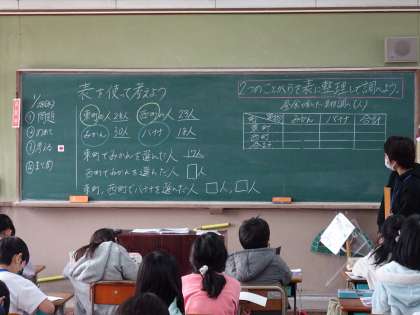 表を使って考えよう
東町の人 28人 西町の人 23人
みかん 30人 バナナ
東町でみかんを選んだ人 17人
西町でみかんを選んだ人 □人
東町、西町でバナナを選んだ人 □人、□人
①問題
②めあて
③考える
④まとめ
2つのことがらを表に整理して調べよう。
みかん バナナ 合計
東町
西町
合計